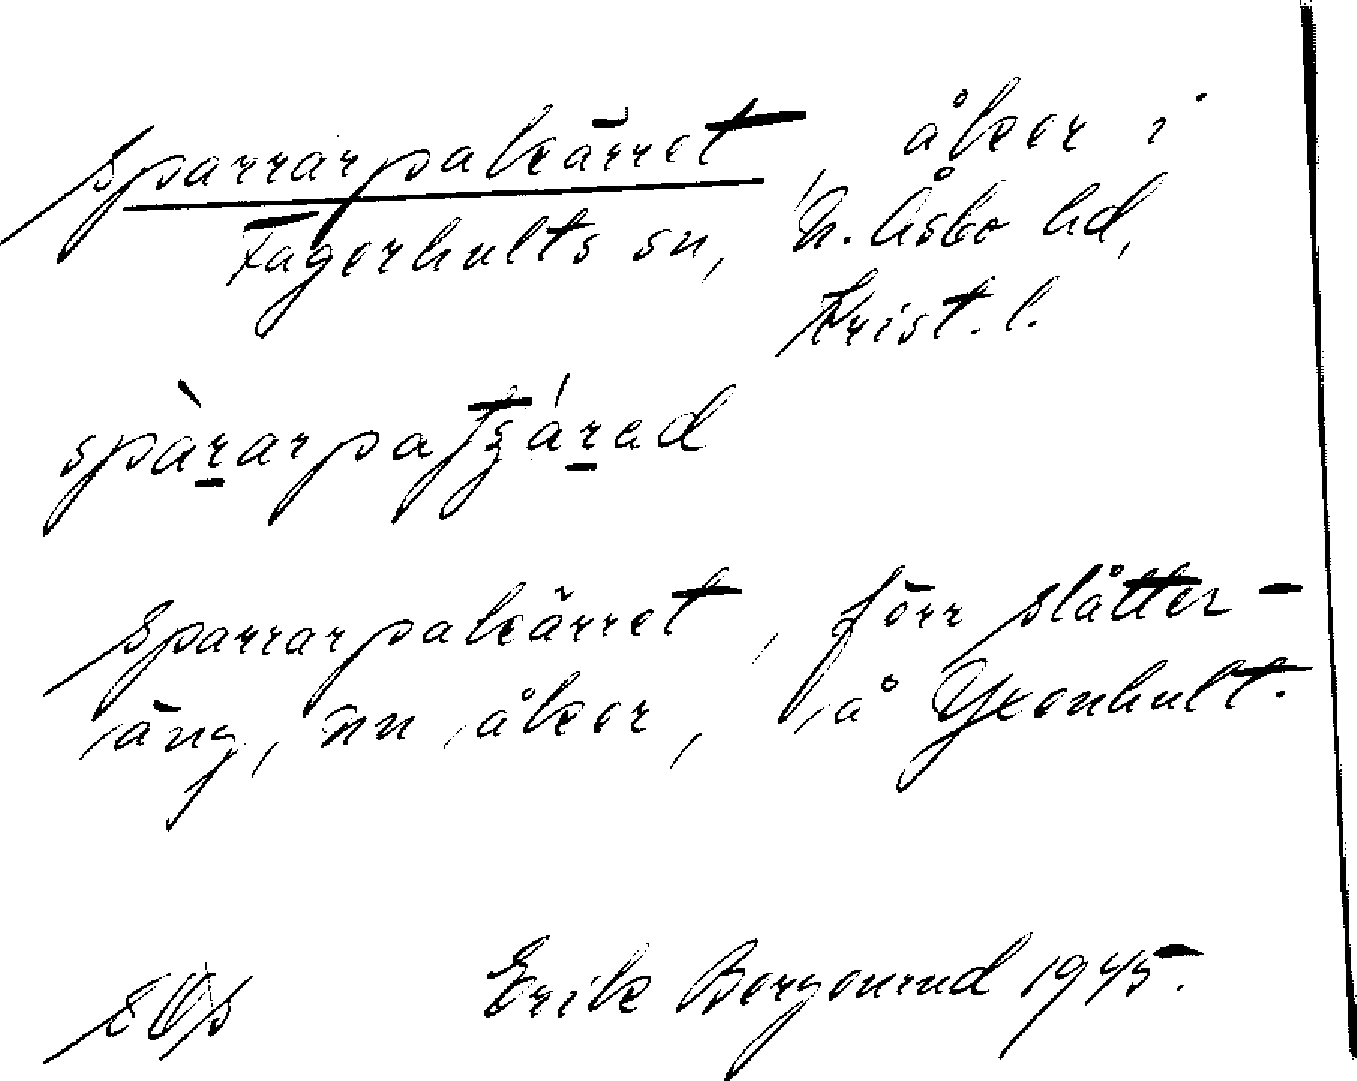 Sparrarpakärret, åker i
Fagerhults sn, N. Åsbo hd,
Krist. l.
spàrarpa
Sparrarpakärret, förr slåtter-
äng, nu åker, å Yxenhult.
Erik Bergenrud 1945.